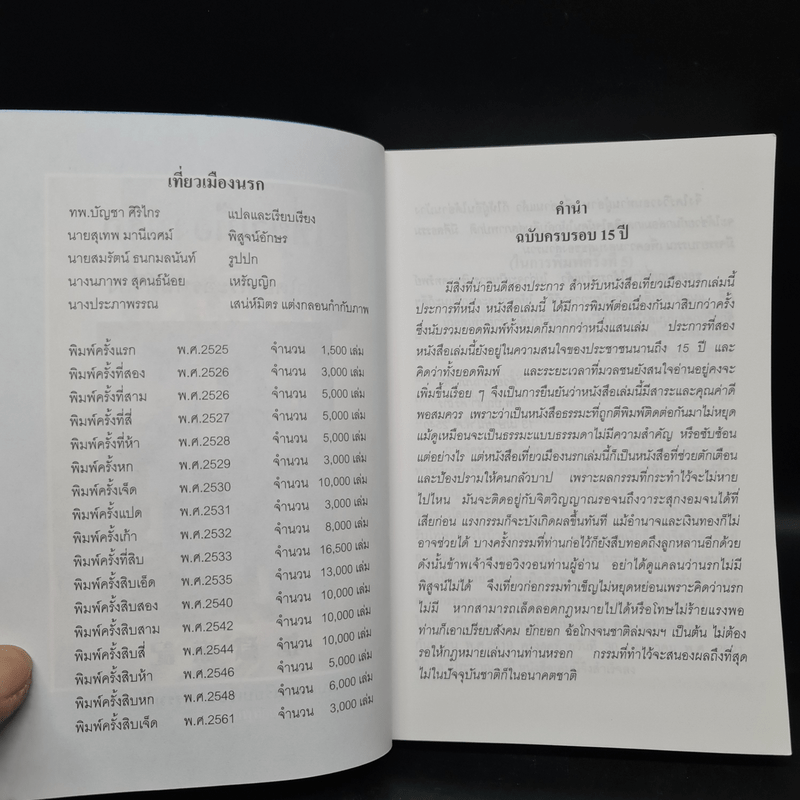 เที่ยวเมืองนรก
ทพ.บัญชา ศิริไกร แปลและเรียบเรียง
นายสุเทพ มานีเวศม์ พิสูจน์อักษร
นายสมรัตน์ ธนกมลนันท์ รูปปก
นางนภาพร สุคนธ์น้อย เหรัญญิก
นางประภาพรรณ เสน่ห์มิตร แต่งกลอนกำกับภาพ
พิมพ์ครั้งแรก พ.ศ.2525 จำนวน 1,500 เล่ม
พิมพ์ครั้งที่สอง พ.ศ.2526 จำนวน 3,000 เล่ม
พิมพ์ครั้งที่สาม พ.ศ.2526 จำนวน 5,000 เล่ม
พิมพ์ครั้งที่สี่ พ.ศ.2527 จำนวน 5,000 เล่ม
พิมพ์ครั้งที่ห้า พ.ศ.2528 จำนวน 5,000 เล่ม
พิมพ์ครั้งหก พ.ศ.2529 จำนวน 3,000 เล่ม
พิมพ์ครั้งเจ็ด พ.ศ.2530 จำนวน 10,000 เล่ม
พิมพ์ครั้งแปด พ.ศ.2531 จำนวน 3,000 เล่ม
พิมพ์ครั้งเก้า พ.ศ.2532 จำนวน 8,000 เล่ม
พิมพ์ครั้งที่สิบ พ.ศ.2533 จำนวน 16,500 เล่ม
พิมพ์ครั้งสิบเอ็ด พ.ศ.2535 จำนวน 13,000 เล่ม
พิมพ์ครั้งสิบสอง พ.ศ.2540 จำนวน 10,000 เล่ม
พิมพ์ครั้งสิบสาม พ.ศ.2542 จำนวน 10,000 เล่ม
พิมพ์ครั้งสิบสี่ พ.ศ.2544 จำนวน 10,000 เล่ม
พิมพ์ครั้งสิบห้า พ.ศ.2546 จำนวน 5,000 เล่ม
พิมพ์ครั้งสิบหก พ.ศ.2548 จำนวน 6,000 เล่ม
พิมพ์ครั้งสิบเจ็ด พ.ศ.2561 จำนวน 3,000 เล่ม
คำนำ
ฉบับครบรอบ 15 ปี
มีสิ่งที่น่ายินดีสองประการ สำหรับหนังสือเที่ยวเมืองนรกเล่มนี้
ประการที่หนึ่ง หนังสือเล่มนี้ ได้มีการพิมพ์ต่อเนื่องกันมาสิบกว่าครั้ง
ซึ่งนับรวมยอดพิมพ์ทั้งหมดก็มากกว่าหนึ่งแสนเล่ม ประการที่สอง
หนังสือเล่มนี้ยังอยู่ในความสนใจของประชาชนนานถึง 15 ปี และ
คิดว่าทั้งยอดพิมพ์ และระยะเวลาที่มวลชนยังสนใจอ่านอยู่คงจะ
เพิ่มขึ้นเรื่อย ๆ จึงเป็นการยืนยันว่าหนังสือเล่มนี้มีสาระและคุณค่าดี
พอสมควร เพราะว่าเป็นหนังสือธรรมะที่ถูกตีพิมพ์ติดต่อกันมาไม่หยุด
แม้ดูเหมือนจะเป็นธรรมะแบบธรรมดาไม่มีความสำคัญ หรือซับซ้อน
แต่อย่างไร แต่หนังสือเที่ยวเมืองนรกเล่มนี้ก็เป็นหนังสือที่ช่วยตักเตือน
และป้องปรามให้คนกลัวบาป เพราะผลกรรมที่กระทำไว้จะไม่หาย
ไปไหน มันจะติดอยู่กับจิตวิญญาณรอจนถึงวาระสุกงอมจนได้ที่
เสียก่อน แรงกรรมก็จะบังเกิดผลขึ้นทันที แม้อำนาจและเงินทองก็ไม่
อาจช่วยได้ บางครั้งกรรมที่ท่านก่อไว้ก็ยังสืบทอดถึงลูกหลานอีกด้วย
ดังนั้นข้าพเจ้าจึงขอวิงวอนท่านผู้อ่าน อย่าได้ดูแคลนว่านรกไม่มี
พิสูจน์ไม่ได้ จึงเที่ยวก่อกรรมทำเข็ญไม่หยุดหย่อนเพราะคิดว่านรก
ไม่มี หากสามารถเล็ดลอดกฎหมายไปได้หรือโทษไม่ร้ายแรงพอ
ท่านก็เอาเปรียบสังคม ยักยอก ฉ้อโกงจนชาติล่มจมฯ เป็นต้น ไม่ต้อง
รอให้กฎหมายเล่นงานท่านหรอก กรรมที่ทำไว้จะสนองผลถึงที่สุด
ไม่ในปัจจุบันชาติก็ในอนาคตชาติ